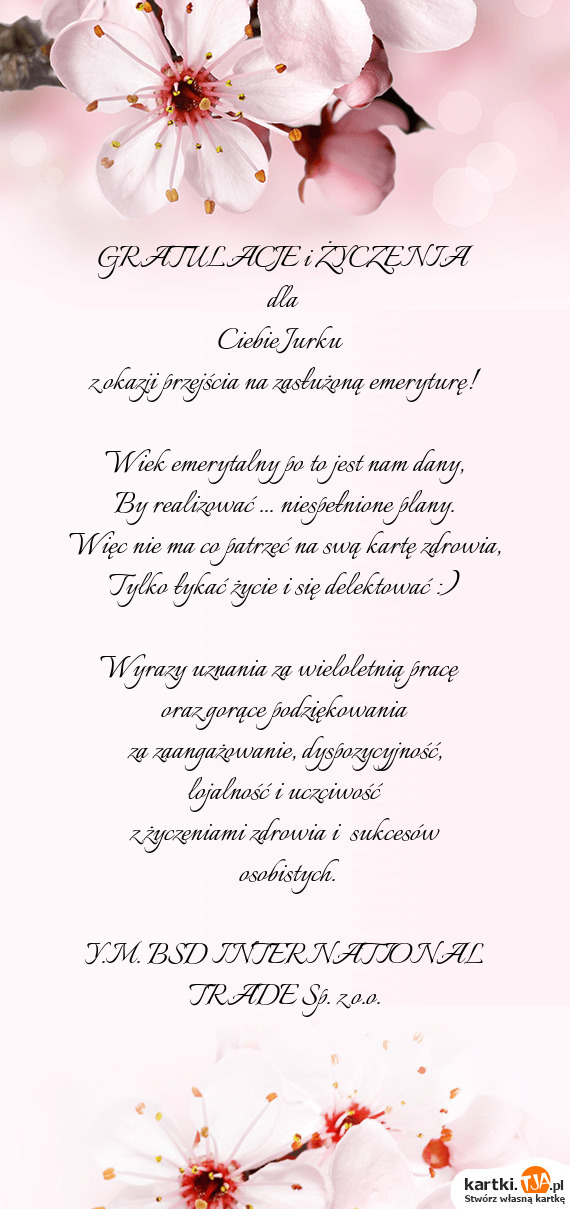 GRATULACJE i ŻYCZENIA
dla
Ciebie Jurku
z okazji przejścia na zasłużoną emeryturę!
Wiek emerytalny po to jest nam dany,
By realizować ... niespełnione plany.
Więc nie ma co patrzęć na swą kartę zdrowia,
Tylko łykać życie i się delektować :)
Wyrazy uznania za wieloletnią pracę
oraz gorące podziękowania
za zaangażowanie, dyspozycyjność,
lojalność i uczciwość
z życzeniami zdrowia i sukcesów
osobistych.
Y.M. BSD INTERNATIONAL
TRADE Sp. z o.o.
kartki.TJA.pl
Stwórz własną kartkę